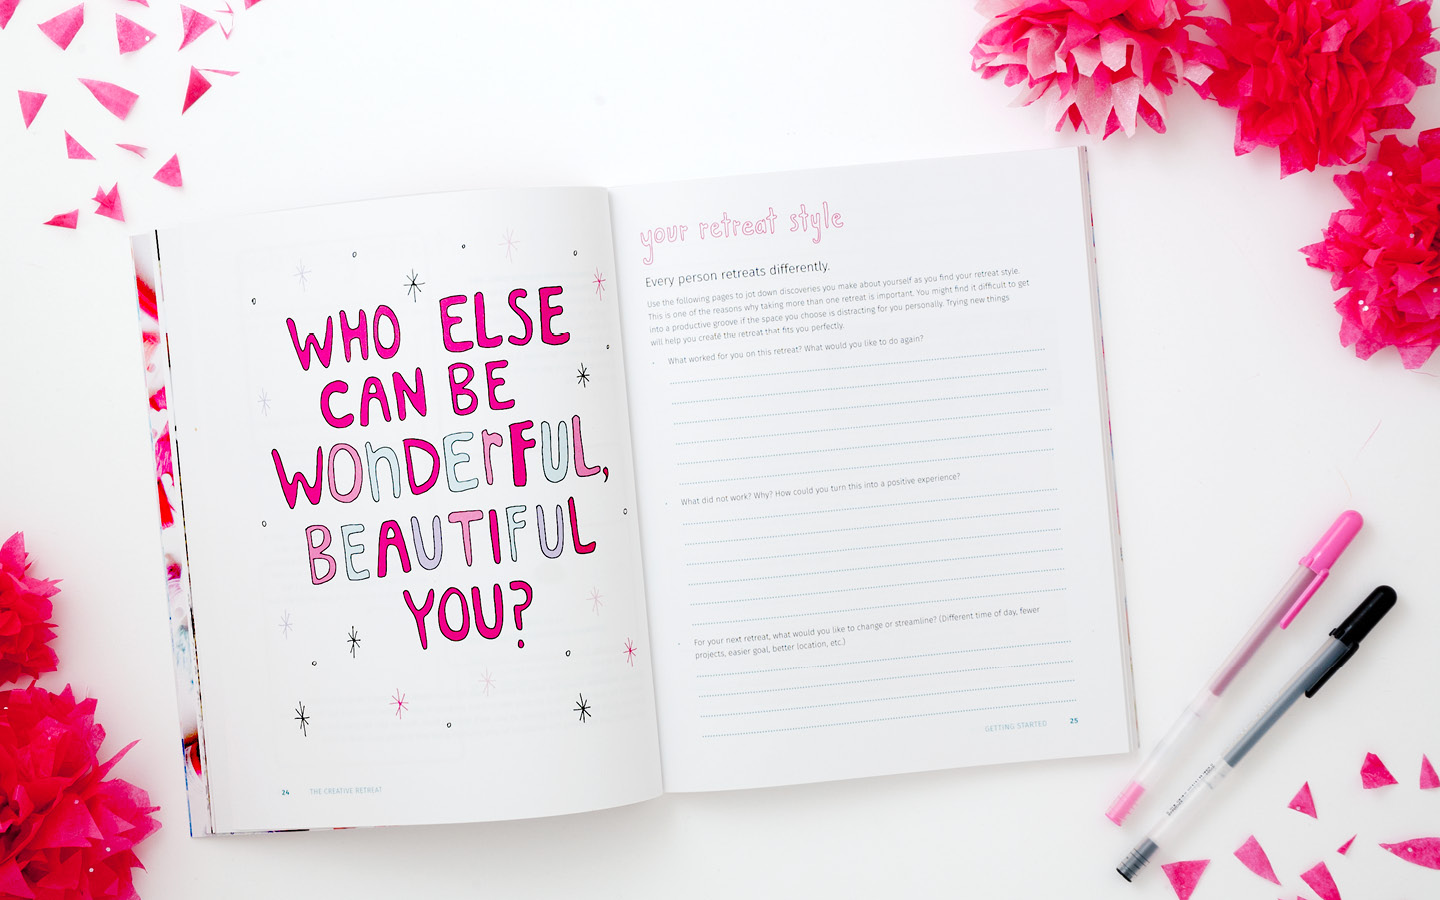 WHO ELSE
CAN BE
WONDERFUL,
BEAUTIFUL
YOU?
24 THE CREATIVE RETREAT
your retreat style
Every person retreats differently.
Use the following pages to jot down discoveries you make about yourself as you find your retreat style.
This is one of the reasons why taking more than one retreat is important. You might find it difficult to get
into a productive groove if the space you choose is distracting for you personally. Trying new things
will help you create the retreat that fits you perfectly.
- What worked for you on this retreat? What would you like to do again?
- What did not work? Why? How could you turn this into a positive experience?
- For your next retreat, what would you like to change or streamline? (Different time of day, fewer
projects, easier goal, better location, etc.)
GETTING STARTED 25